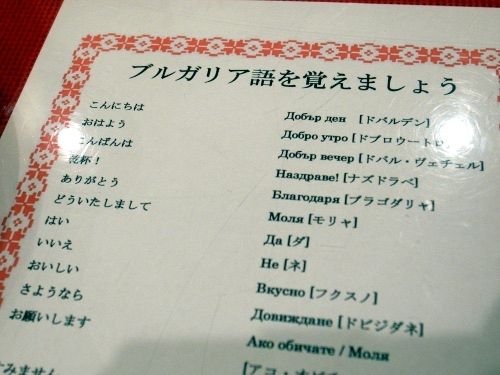 ブルガリア語を覚えましょう
こんにちは Добър ден [ドバルデン]
おはよう Добро утро [ドブロウートロ
こんばんは Добър вечер [ドバル・ヴェチェル]
乾杯! Наздраве! [ナズドラベ]
ありがとう Благодаря [ブラゴダリャ]
どういたしまして Моля [モリャ]
はい Да [ダ]
いいえ Не [ネ]
おいしい Вкусно [フクスノ]
さようなら Довиждане [ドビジダネ]
お願いします Ако обичате / Моля
すみません